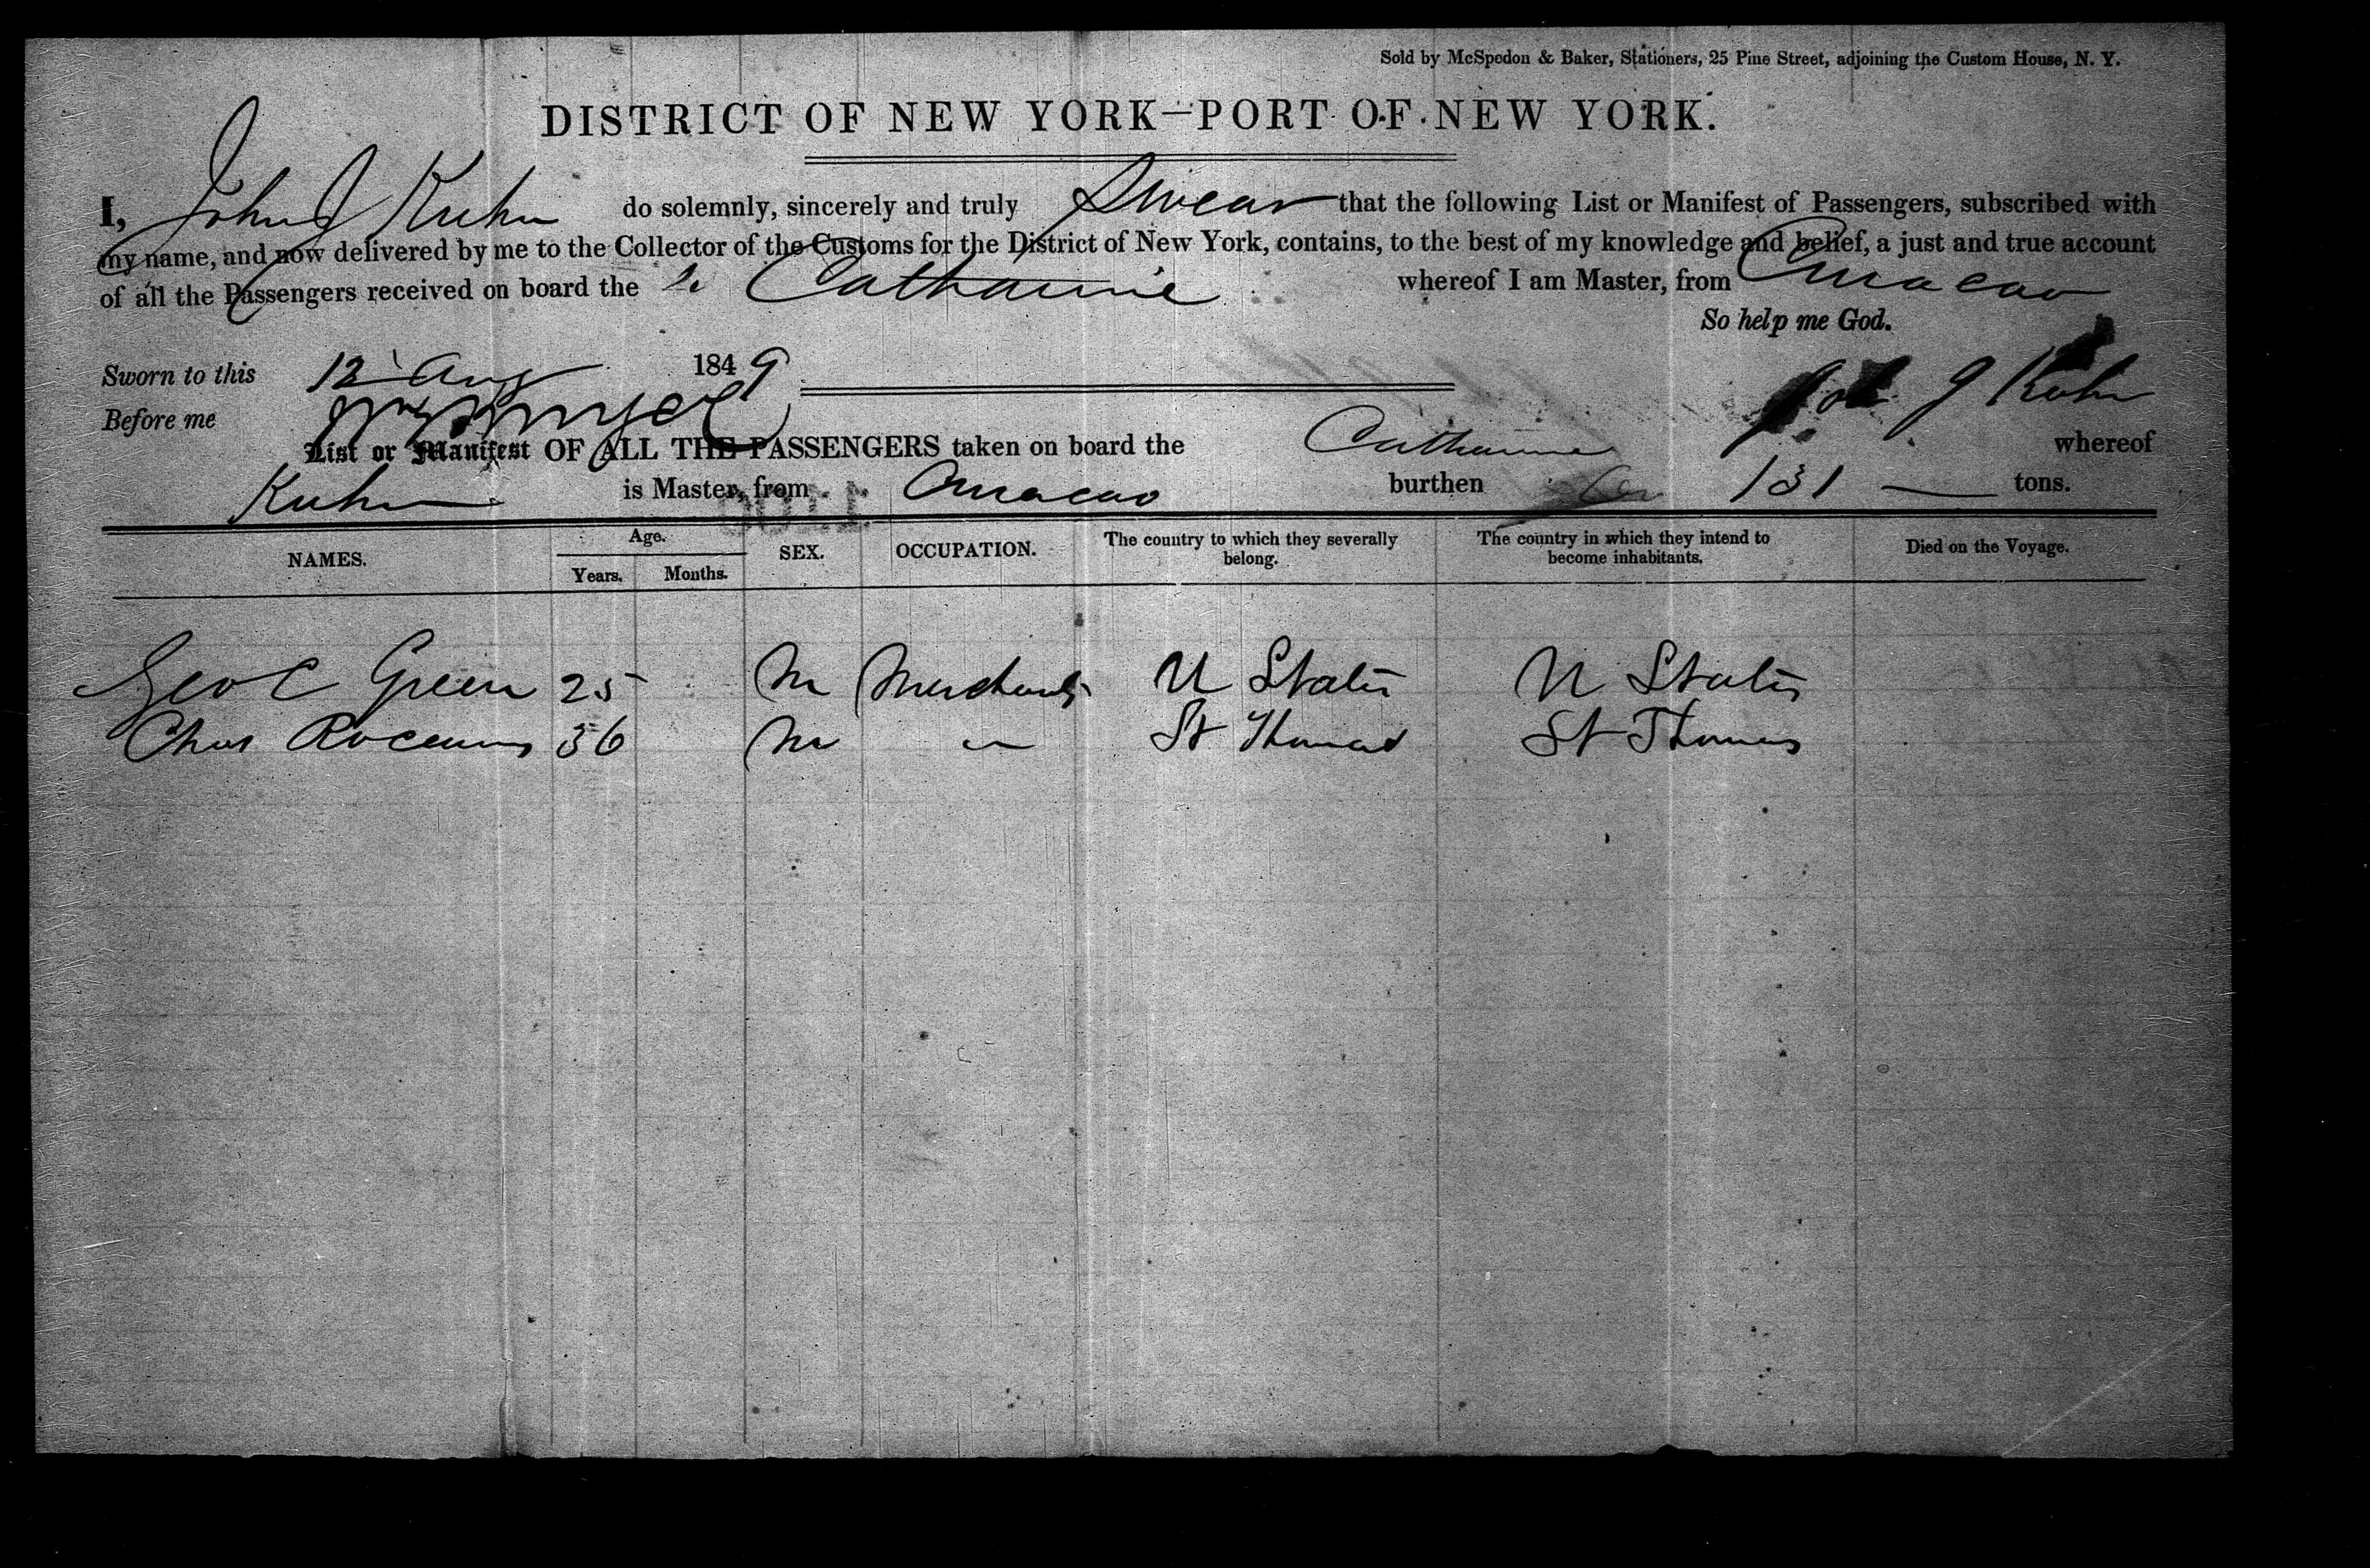 Sold by McSpedon & Baker, Stationers, 25 Pine Street, adjoining the Custom House, N. Y.
DISTRICT OF NEW YORK—PORT OF NEW YORK.
I, John J Kuhn do solemnly, sincerely and truly Swear that the following List or Manifest of Passengers, subscribed with
my name, and now delivered by me to the Collector of the Customs for the District of New York, contains, to the best of my knowledge and belief, a just and true account
of all the Passengers received on board the Catharine whereof I am Master, from Curacao
So help me God.
Sworn to this 12 Aug 1849
John J Kuhn
Before me
List or Manifest OF ALL THE PASSENGERS taken on board the Catharine whereof
Kuhn is Master, from Curacao burthen 131 tons.
NAMES. Age. Years. Months. SEX. OCCUPATION. The country to which they severally belong. The country in which they intend to become inhabitants. Died on the Voyage.
Geo C Green 25 M Merchant U States U States
Chas 36 M " St Thomas St Thomas